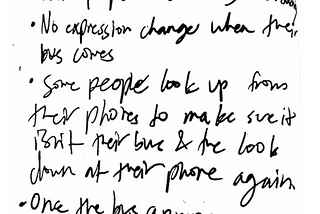 • No expression change when their
bus comes
• Some people look up from
their phones to make sure it
isn't their bus & the look
down at their phone again
• Once the bus